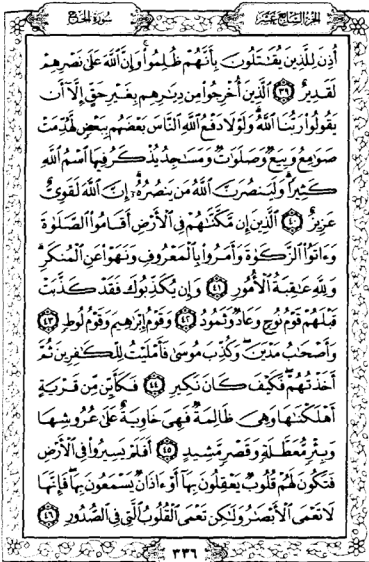 الجزء السابع عشر
سورة الحج
أُذِنَ لِلَّذِينَ يُقَٰتَلُونَ بِأَنَّهُمْ ظُلِمُواْ ۚ وَإِنَّ ٱللَّهَ عَلَىٰ نَصْرِهِمْ
لَقَدِيرٌ ٣٩ ٱلَّذِينَ أُخْرِجُواْ مِن دِيَٰرِهِم بِغَيْرِ حَقٍّ إِلَّآ أَن
يَقُولُواْ رَبُّنَا ٱللَّهُ ۗ وَلَوْلَا دَفْعُ ٱللَّهِ ٱلنَّاسَ بَعْضَهُم بِبَعْضٍ لَّهُدِّمَتْ
صَوَٰمِعُ وَبِيَعٌ وَصَلَوَٰتٌ وَمَسَٰجِدُ يُذْكَرُ فِيهَا ٱسْمُ ٱللَّهِ
كَثِيرًا ۗ وَلَيَنصُرَنَّ ٱللَّهُ مَن يَنصُرُهُۥٓ ۗ إِنَّ ٱللَّهَ لَقَوِىٌّ
عَزِيزٌ ٤٠ ٱلَّذِينَ إِن مَّكَّنَّٰهُمْ فِى ٱلْأَرْضِ أَقَامُواْ ٱلصَّلَوٰةَ
وَءَاتَوُاْ ٱلزَّكَوٰةَ وَأَمَرُواْ بِٱلْمَعْرُوفِ وَنَهَوْاْ عَنِ ٱلْمُنكَرِ ۗ
وَلِلَّهِ عَٰقِبَةُ ٱلْأُمُورِ ٤١ وَإِن يُكَذِّبُوكَ فَقَدْ كَذَّبَتْ
قَبْلَهُمْ قَوْمُ نُوحٍ وَعَادٌ وَثَمُودُ ٤٢ وَقَوْمُ إِبْرَٰهِيمَ وَقَوْمُ لُوطٍ ٤٣
وَأَصْحَٰبُ مَدْيَنَ ۖ وَكُذِّبَ مُوسَىٰ فَأَمْلَيْتُ لِلْكَٰفِرِينَ ثُمَّ
أَخَذْتُهُمْ ۖ فَكَيْفَ كَانَ نَكِيرِ ٤٤ فَكَأَيِّن مِّن قَرْيَةٍ
أَهْلَكْنَٰهَا وَهِىَ ظَالِمَةٌ فَهِىَ خَاوِيَةٌ عَلَىٰ عُرُوشِهَا
وَبِئْرٍ مُّعَطَّلَةٍ وَقَصْرٍ مَّشِيدٍ ٤٥ أَفَلَمْ يَسِيرُواْ فِى ٱلْأَرْضِ
فَتَكُونَ لَهُمْ قُلُوبٌ يَعْقِلُونَ بِهَآ أَوْ ءَاذَانٌ يَسْمَعُونَ بِهَا ۖ فَإِنَّهَا
لَا تَعْمَى ٱلْأَبْصَٰرُ وَلَٰكِن تَعْمَى ٱلْقُلُوبُ ٱلَّتِى فِى ٱلصُّدُورِ ٤٦
٣٣٦